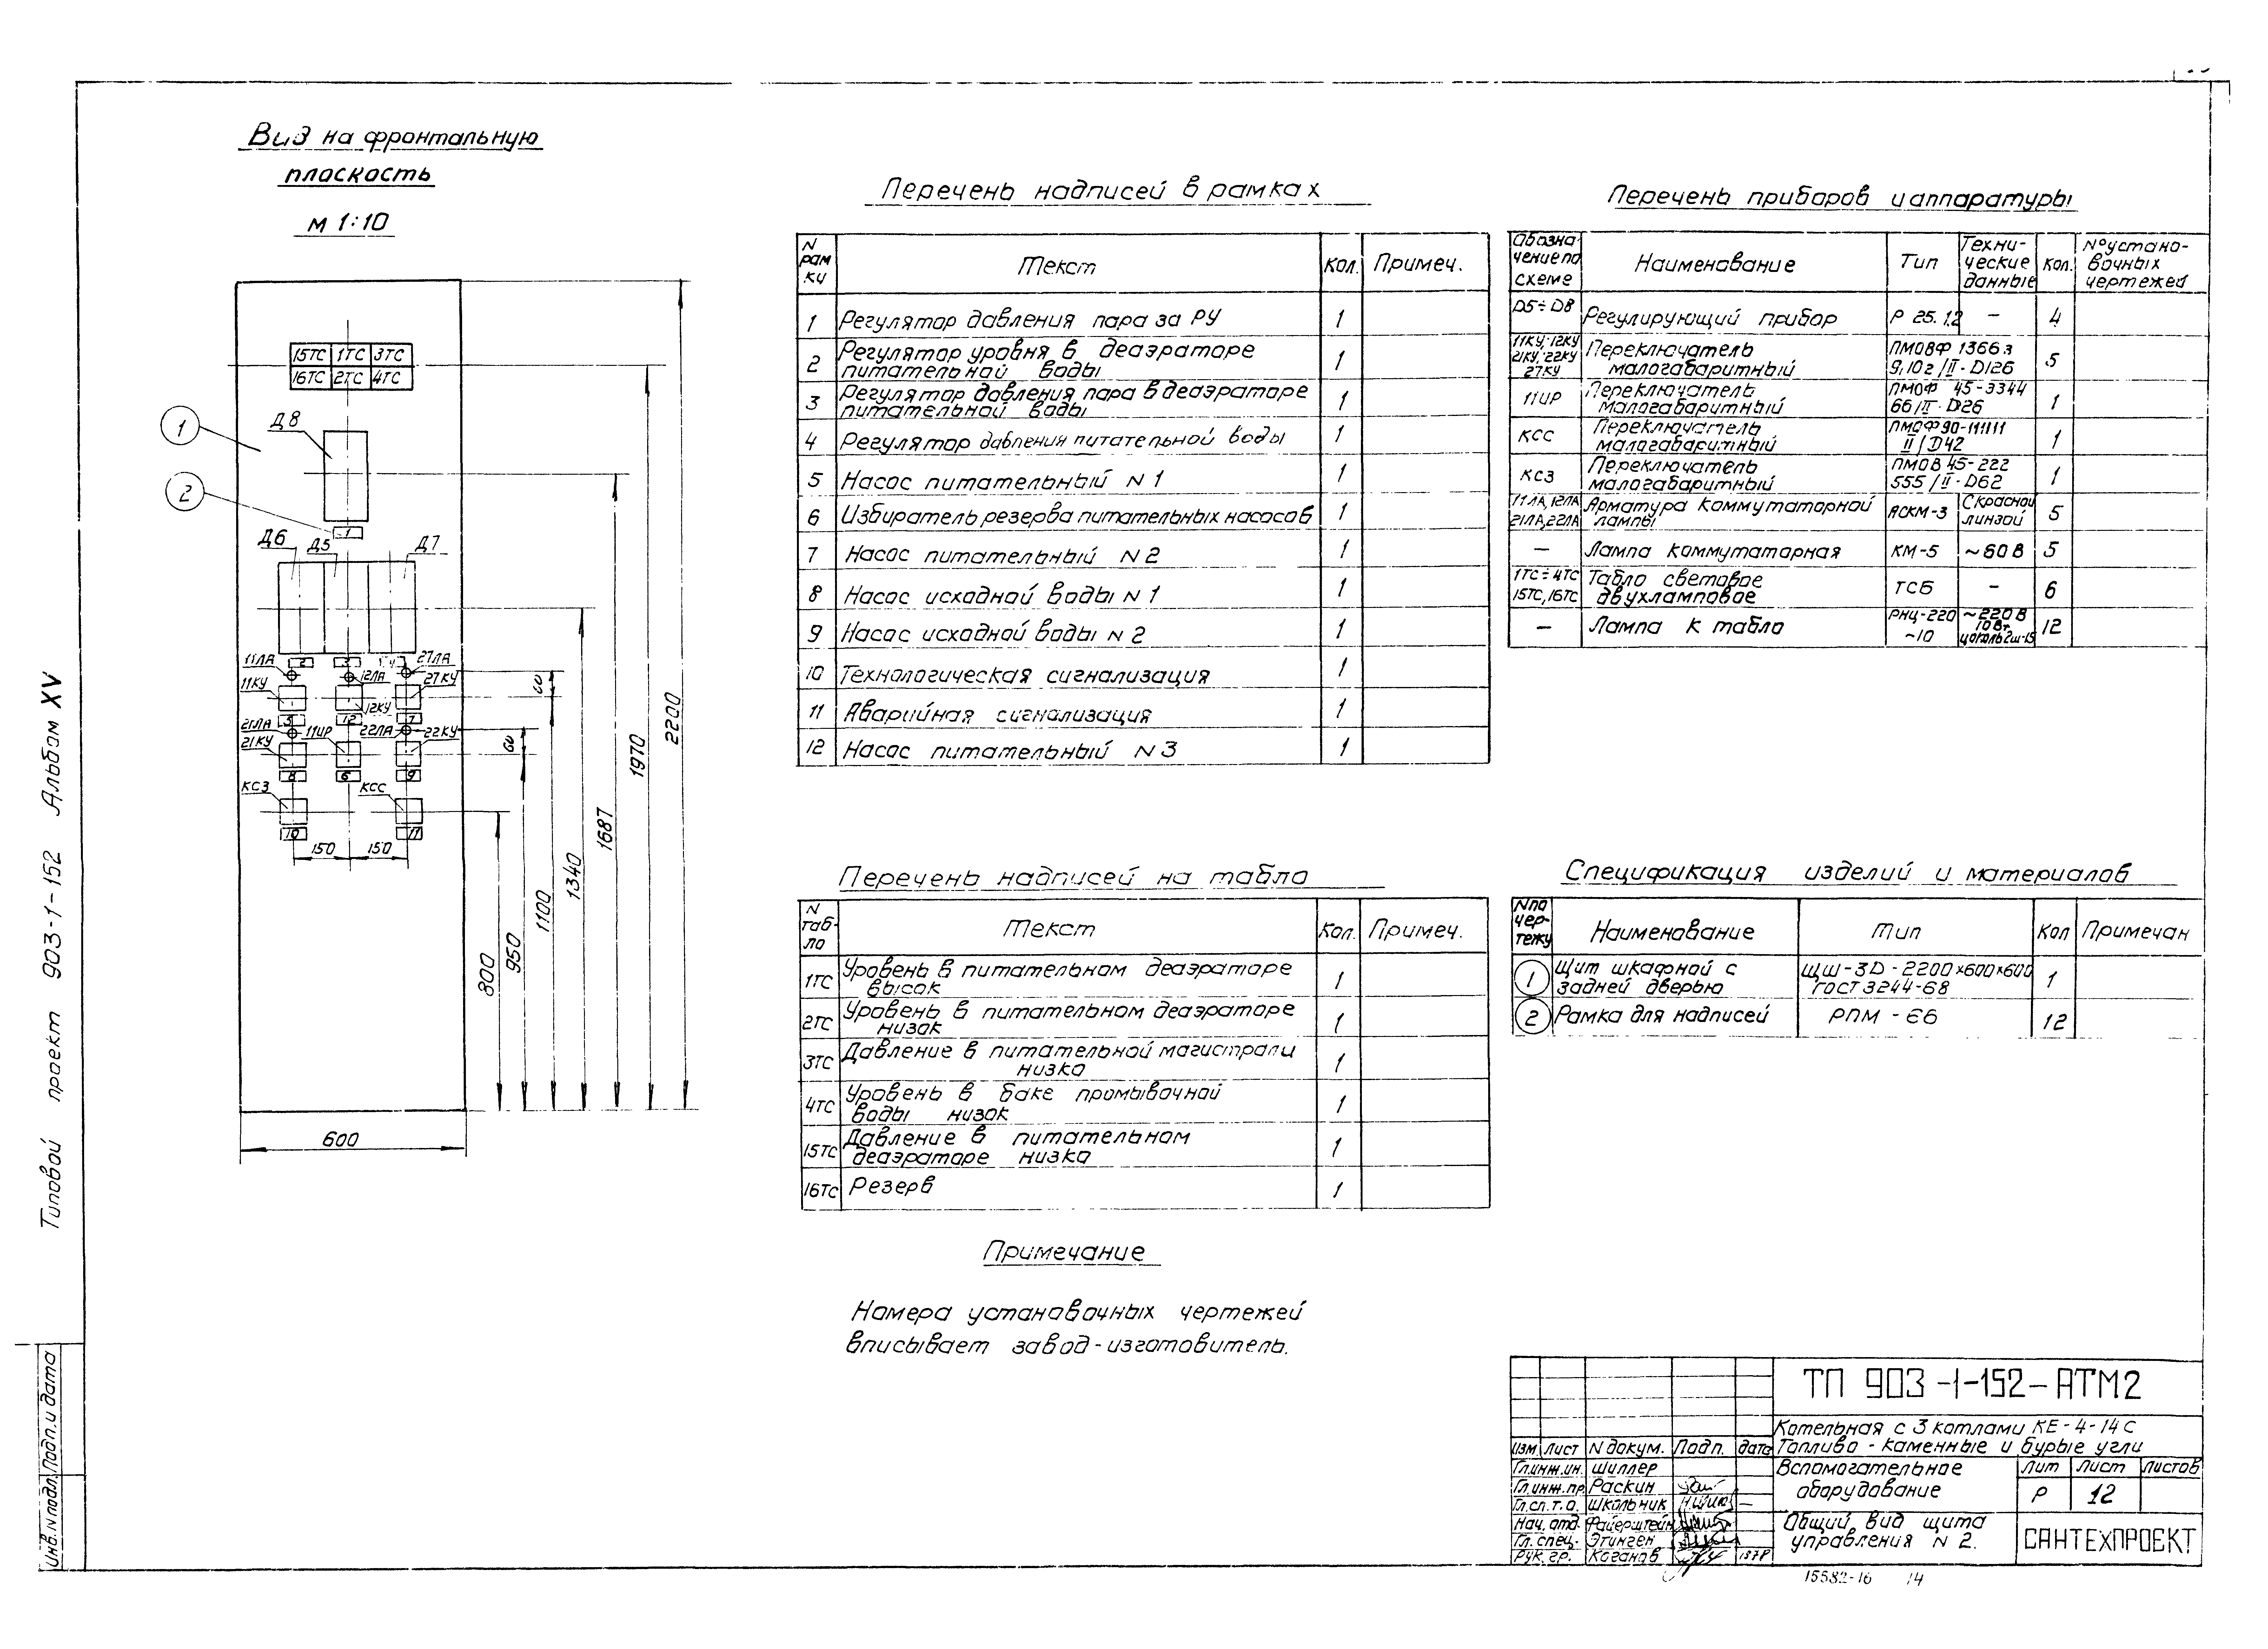 Вид на фронтальную
плоскость
М 1:10
15ТС 1ТС 3ТС
16ТС 2ТС 4ТС
1
Д8
2
1
Д6 Д5 Д7
11ЛА 2 3 4 27ЛА
12ЛА
11КУ 27КУ
12КУ
21ЛА 5 12 7
22ЛА
21КУ 11ИР 22КУ
8 6 9
КСЗ КСС
10 11
150 150
60
60
800
950
1100
1340
1687
1970
2200
600
Перечень надписей в рамках
N рам ки Текст Кол. Примеч.
1 Регулятор давления пара за РУ 1
2 Регулятор уровня в деаэраторе
питательной воды 1
3 Регулятор давления пара в деаэраторе
питательной воды 1
4 Регулятор давления питательной воды 1
5 Насос питательный N 1 1
6 Избиратель резерва питательных насосов 1
7 Насос питательный N 2 1
8 Насос исходной воды N 1 1
9 Насос исходной воды N 2 1
10 Технологическая сигнализация 1
11 Аварийная сигнализация 1
12 Насос питательный N 3 1
Перечень надписей на табло
N таб-ло Текст Кол. Примеч.
1ТС Уровень в питательном деаэраторе
высок 1
2ТС Уровень в питательном деаэраторе
низок 1
3ТС Давление в питательной магистрали
низко 1
4ТС Уровень в баке промывочной
воды низок 1
15ТС Давление в питательном
деаэраторе низко 1
16ТС Резерв 1
Примечание
Номера установочных чертежей
вписывает завод-изготовитель.
Перечень приборов и аппаратуры
Обозна-чение по схеме Наименование Тип Техни-ческие данные Кол. N° устано-вочных чертежей
Д5÷Д8 Регулирующий прибор Р 25.1.2 – 4
11КУ; 12КУ Переключатель ПМОВФ 1366з
21КУ; 22КУ малогабаритный 9,10г/II-D126 5
27КУ
11ИР Переключатель ПМОФ 45-3344
малогабаритный 66/II-D26 1
КСС Переключатель ПМОФ90-111111
малогабаритный II/D42 1
КСЗ Переключатель ПМОВ 45-222
малогабаритный 555/II-D62 1
11ЛА, 12ЛА Арматура коммутаторной АСКМ-3 С красной
21ЛА, 22ЛА лампы линзой 5
– Лампа коммутаторная КМ-5 ~60 В 5
1ТС÷4ТС Табло световое ТСБ – 6
15ТС, 16ТС двухламповое
– Лампа к табло РНЦ-220 ~220 В
~10 10Вт 12
цоколь 2ш-15
Спецификация изделий и материалов
N по чер-тежу Наименование Тип Кол Примечан
1 Щит шкафной с ЩШ-3D-2200х600х600
задней дверью ГОСТ 3244-68 1
2 Рамка для надписей РПМ-66 12
ТП 903-1-152-АТМ2
Котельная с 3 котлами КЕ-4-14С
Топливо - каменные и бурые угли
Изм Лист N докум. Подп. Дата
Гл.инж.ин. Шиллер
Гл.инж.пр Раскин
Гл.сп.т.о. Школьник
Нач. отд. Файерштейн
Гл. спец. Этинген
Рук. гр. Коганов
Вспомогательное
оборудование
Лит Лист Листов
Р 12
Общий вид щита
управления N 2.
САНТЕХПРОЕКТ
15582-16 14
Типовой проект 903-1-152 Альбом XV
Инв. N подл. Подп. и дата